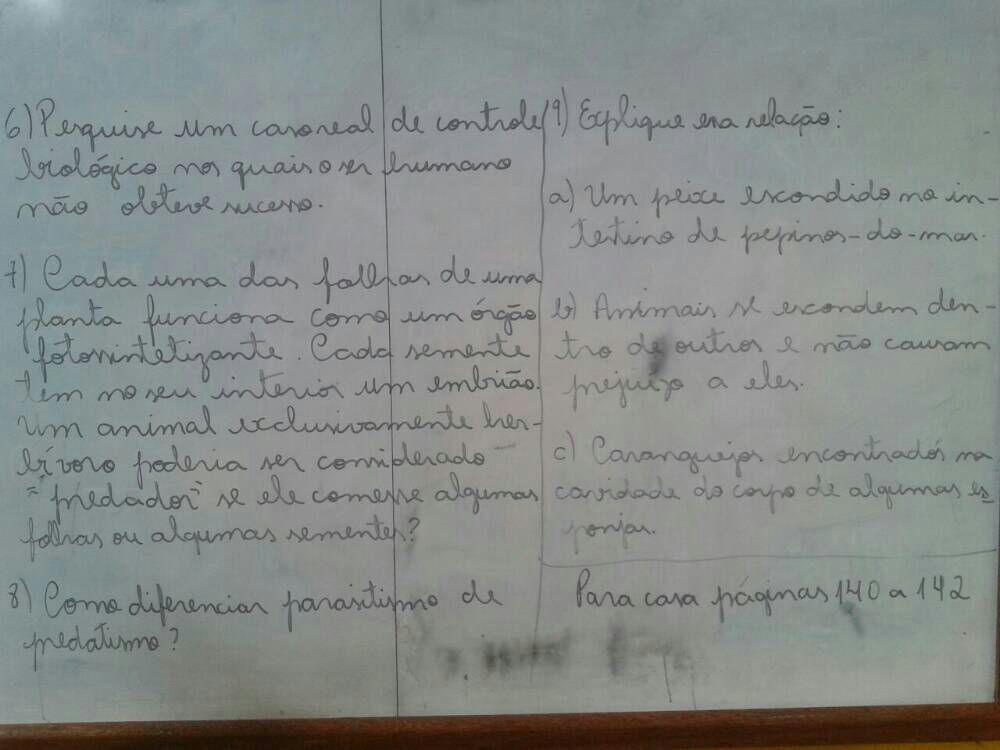 6) Pesquise um caso real de controle
biológico nos quais o ser humano
não obteve sucesso.
7) Cada uma das folhas de uma
planta funciona como um órgão
fotossintetizante. Cada semente
tem no seu interior um embrião.
Um animal exclusivamente her-
bívoro poderia ser considerado
"predador" se ele comesse algumas
folhas ou algumas sementes?
8) Como diferenciar parasitismo de
predatismo?
9) Explique essa relação:
a) Um peixe escondido no in-
testino de pepinos-do-mar.
b) Animais se escondem den-
tro de outros e não causam
prejuízo a eles.
c) Caranguejos encontrados na
cavidade do corpo de algumas es
ponjas.
Para casa páginas 140 a 142